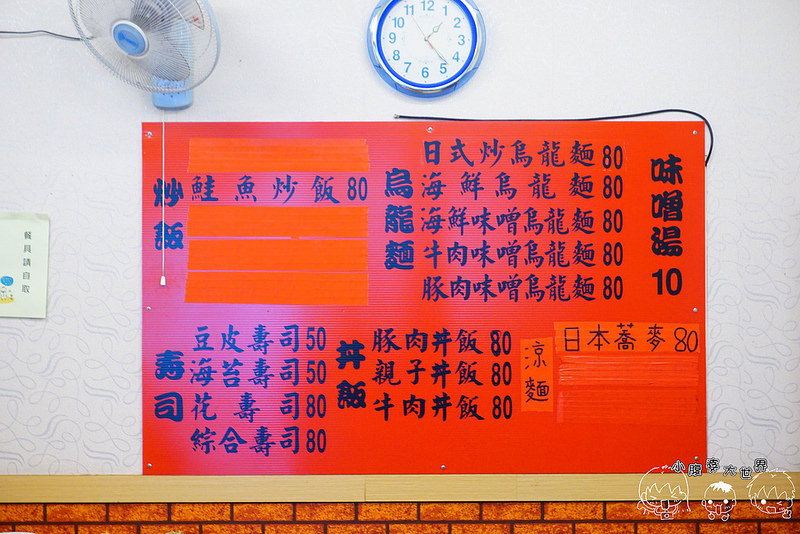 12
1
2
3
4
5
6
7
8
9
10
11
餐具請自取
炒飯
鮭魚炒飯80
烏龍麵
日式炒烏龍麵80
海鮮烏龍麵80
海鮮味噌烏龍麵80
牛肉味噌烏龍麵80
豚肉味噌烏龍麵80
味噌湯10
壽司
豆皮壽司50
海苔壽司50
花壽司80
綜合壽司80
丼飯
豚肉丼飯80
親子丼飯80
牛肉丼飯80
涼麵
日本蕎麥80
小腹婆大世界